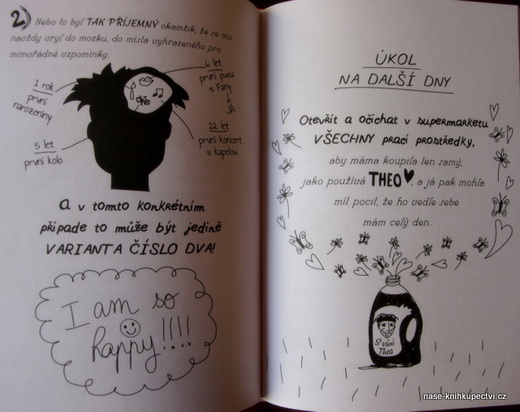 2) Nebo to byl TAK PŘÍJEMNÝ okamžik, že se mu
navždy vryl do mozku, do místa vyhrazeného pro
mimořádné vzpomínky.
1 rok
první
narozeniny
6 let
první pusa
s Fany
↓
Já
5 let
první kolo
12 let
první koncert
s kapelou
a v tomto konkrétním
případě to může být jedině
VARIANTA ČÍSLO DVA!
I am so
happy!!!!
ÚKOL
NA DALŠÍ DNY
Otevřít a očichat v supermarketu
VŠECHNY prací prostředky,
aby máma koupila ten samý,
jako používá THEO♥, a já pak mohla
mít pocit, že ho vedle sebe
mám celý den.
S vůní
Thea
nase-knihkupectvi.cz